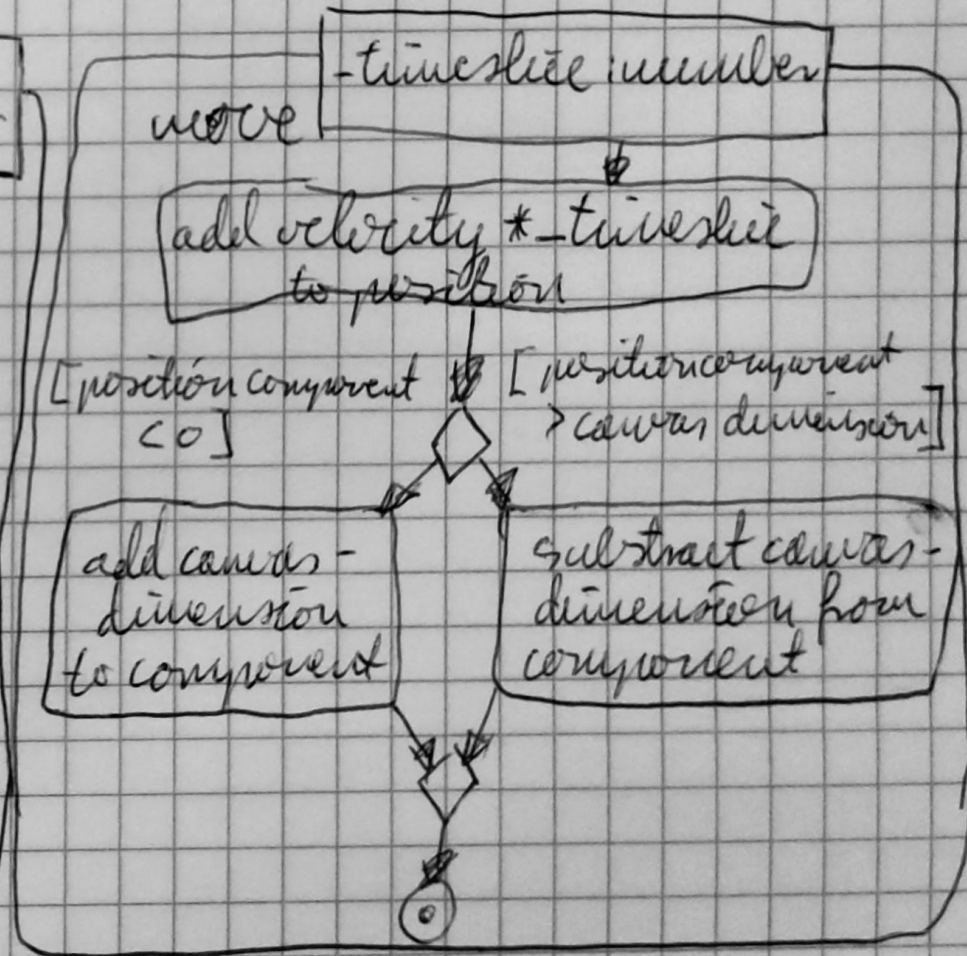 _timeslice : number
move
add velocity * _timeslice
to position
[position component
< 0]
[position component
> canvas dimension]
add canvas-
dimension
to component
substract canvas-
dimension from
component